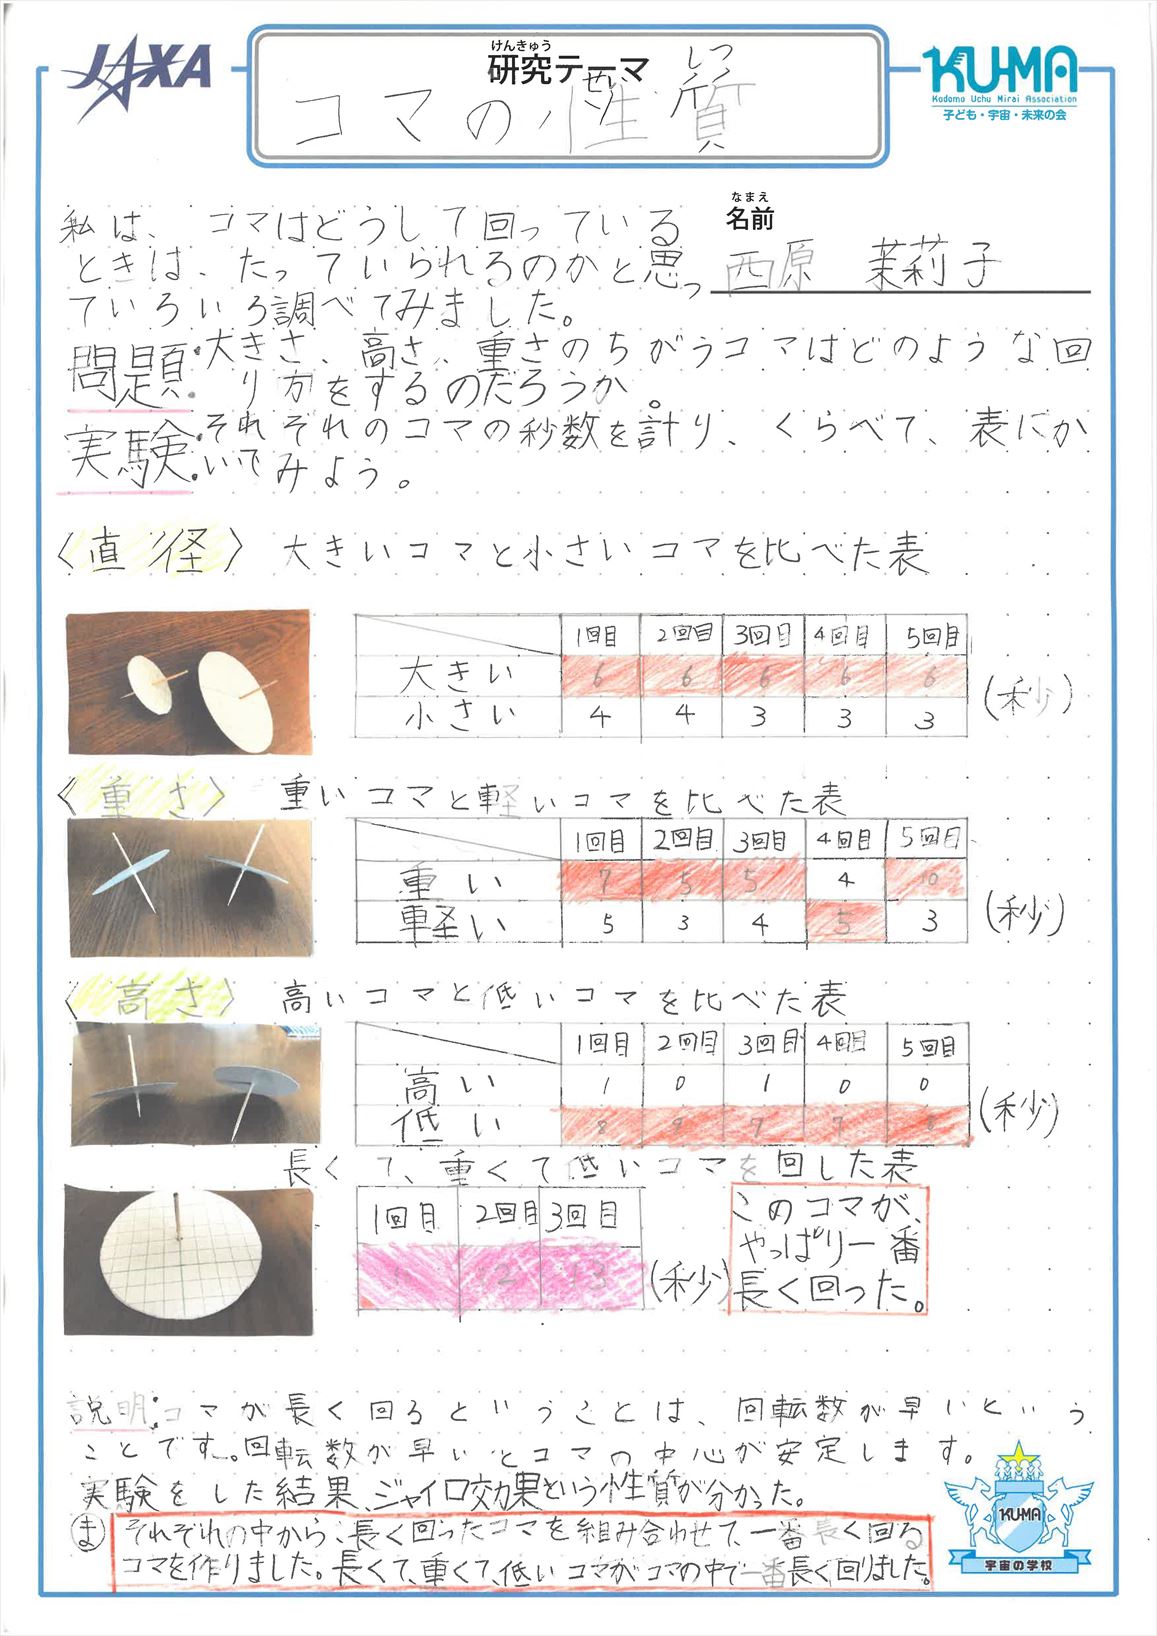 JAXA
けんきゅう
研究テーマ
せい しつ
コマの性質
KU-MA
Kodomo Uchu Mirai Association
子ども・宇宙・未来の会
私は、コマはどうして回っている
ときは、たっていられるのかと思っ
ていろいろ調べてみました。
なまえ
名前
西原 茉莉子
問題:大きさ、高さ、重さのちがうコマはどのような回
り方をするのだろうか。
実験:それぞれのコマの秒数を計り、くらべて、表にか
いてみよう。
〈直径〉 大きいコマと小さいコマを比べた表
1回目 2回目 3回目 4回目 5回目
大きい 6 6 6 6 6
小さい 4 4 3 3 3
(秒)
〈重さ〉 重いコマと軽いコマを比べた表
1回目 2回目 3回目 4回目 5回目
重い 7 5 5 4 10
軽い 5 3 4 5 3
(秒)
〈高さ〉 高いコマと低いコマを比べた表
1回目 2回目 3回目 4回目 5回目
高い 1 0 1 0 0
低い 8 8 7 7
(秒)
長くて、重くて低いコマを回した表
1回目 2回目 3回目
12 13
(秒)
このコマが、
やっぱり一番
長く回った。
説明:コマが長く回るということは、回転数が早いという
ことです。回転数が早いとコマの中心が安定します。
実験をした結果、ジャイロ効果という性質が分かった。
ま それぞれの中から、長く回ったコマを組み合わせて、一番長く回る
コマを作りました。長くて、重くて、低いコマがコマの中で一番長く回りました。
KUMA
宇宙の学校